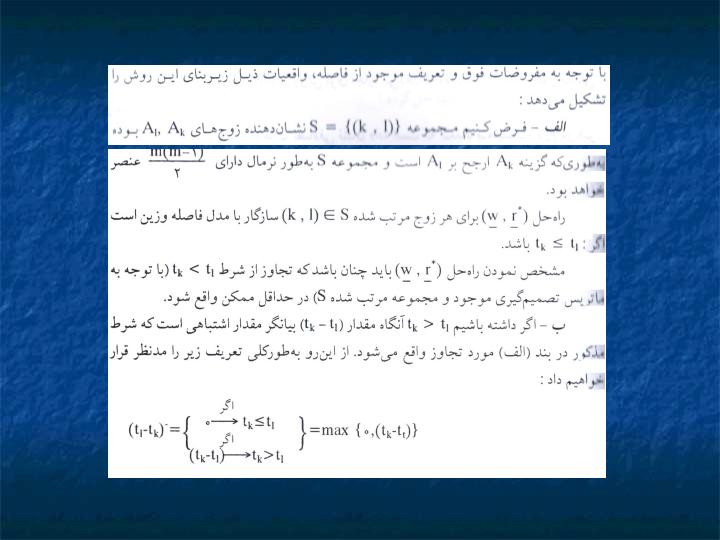 با توجه به مفروضات فوق و تعریف موجود از فاصله، واقعیات ذیل زیربنای این روش را
تشکیل می‌دهد :
الف – فرض کنیم مجموعه S = {(k , l)} نشان‌دهنده زوج‌های A_l, A_k بوده
به‌طوری‌که گزینه A_k ارجح بر A_l است و مجموعه S به‌طور نرمال دارای m(m–۱)/۲ عنصر
خواهد بود.
راه‌حل (w , r*) برای هر زوج مرتب شده (k , l) ∈ S سازگار با مدل فاصله وزین است
اگر : t_k ≤ t_l باشد.
مشخص نمودن راه‌حل (w , r*) باید چنان باشد که تجاوز از شرط t_k < t_l (با توجه به
ماتریس تصمیم‌گیری موجود و مجموعه مرتب شده S) در حداقل ممکن واقع شود.
ب – اگر داشته باشیم t_k > t_l آنگاه مقدار (t_k – t_l) بیانگر مقدار اشتباهی است که شرط
مذکور در بند (الف) مورد تجاوز واقع می‌شود. از این‌رو به‌طورکلی تعریف زیر را مدنظر قرار
خواهیم داد :
اگر
(t_l-t_k)⁻={ ۰→ t_k≤t_l }=max {۰,(t_k-t_t)}
اگر
(t_k-t_l)→t_k>t_l